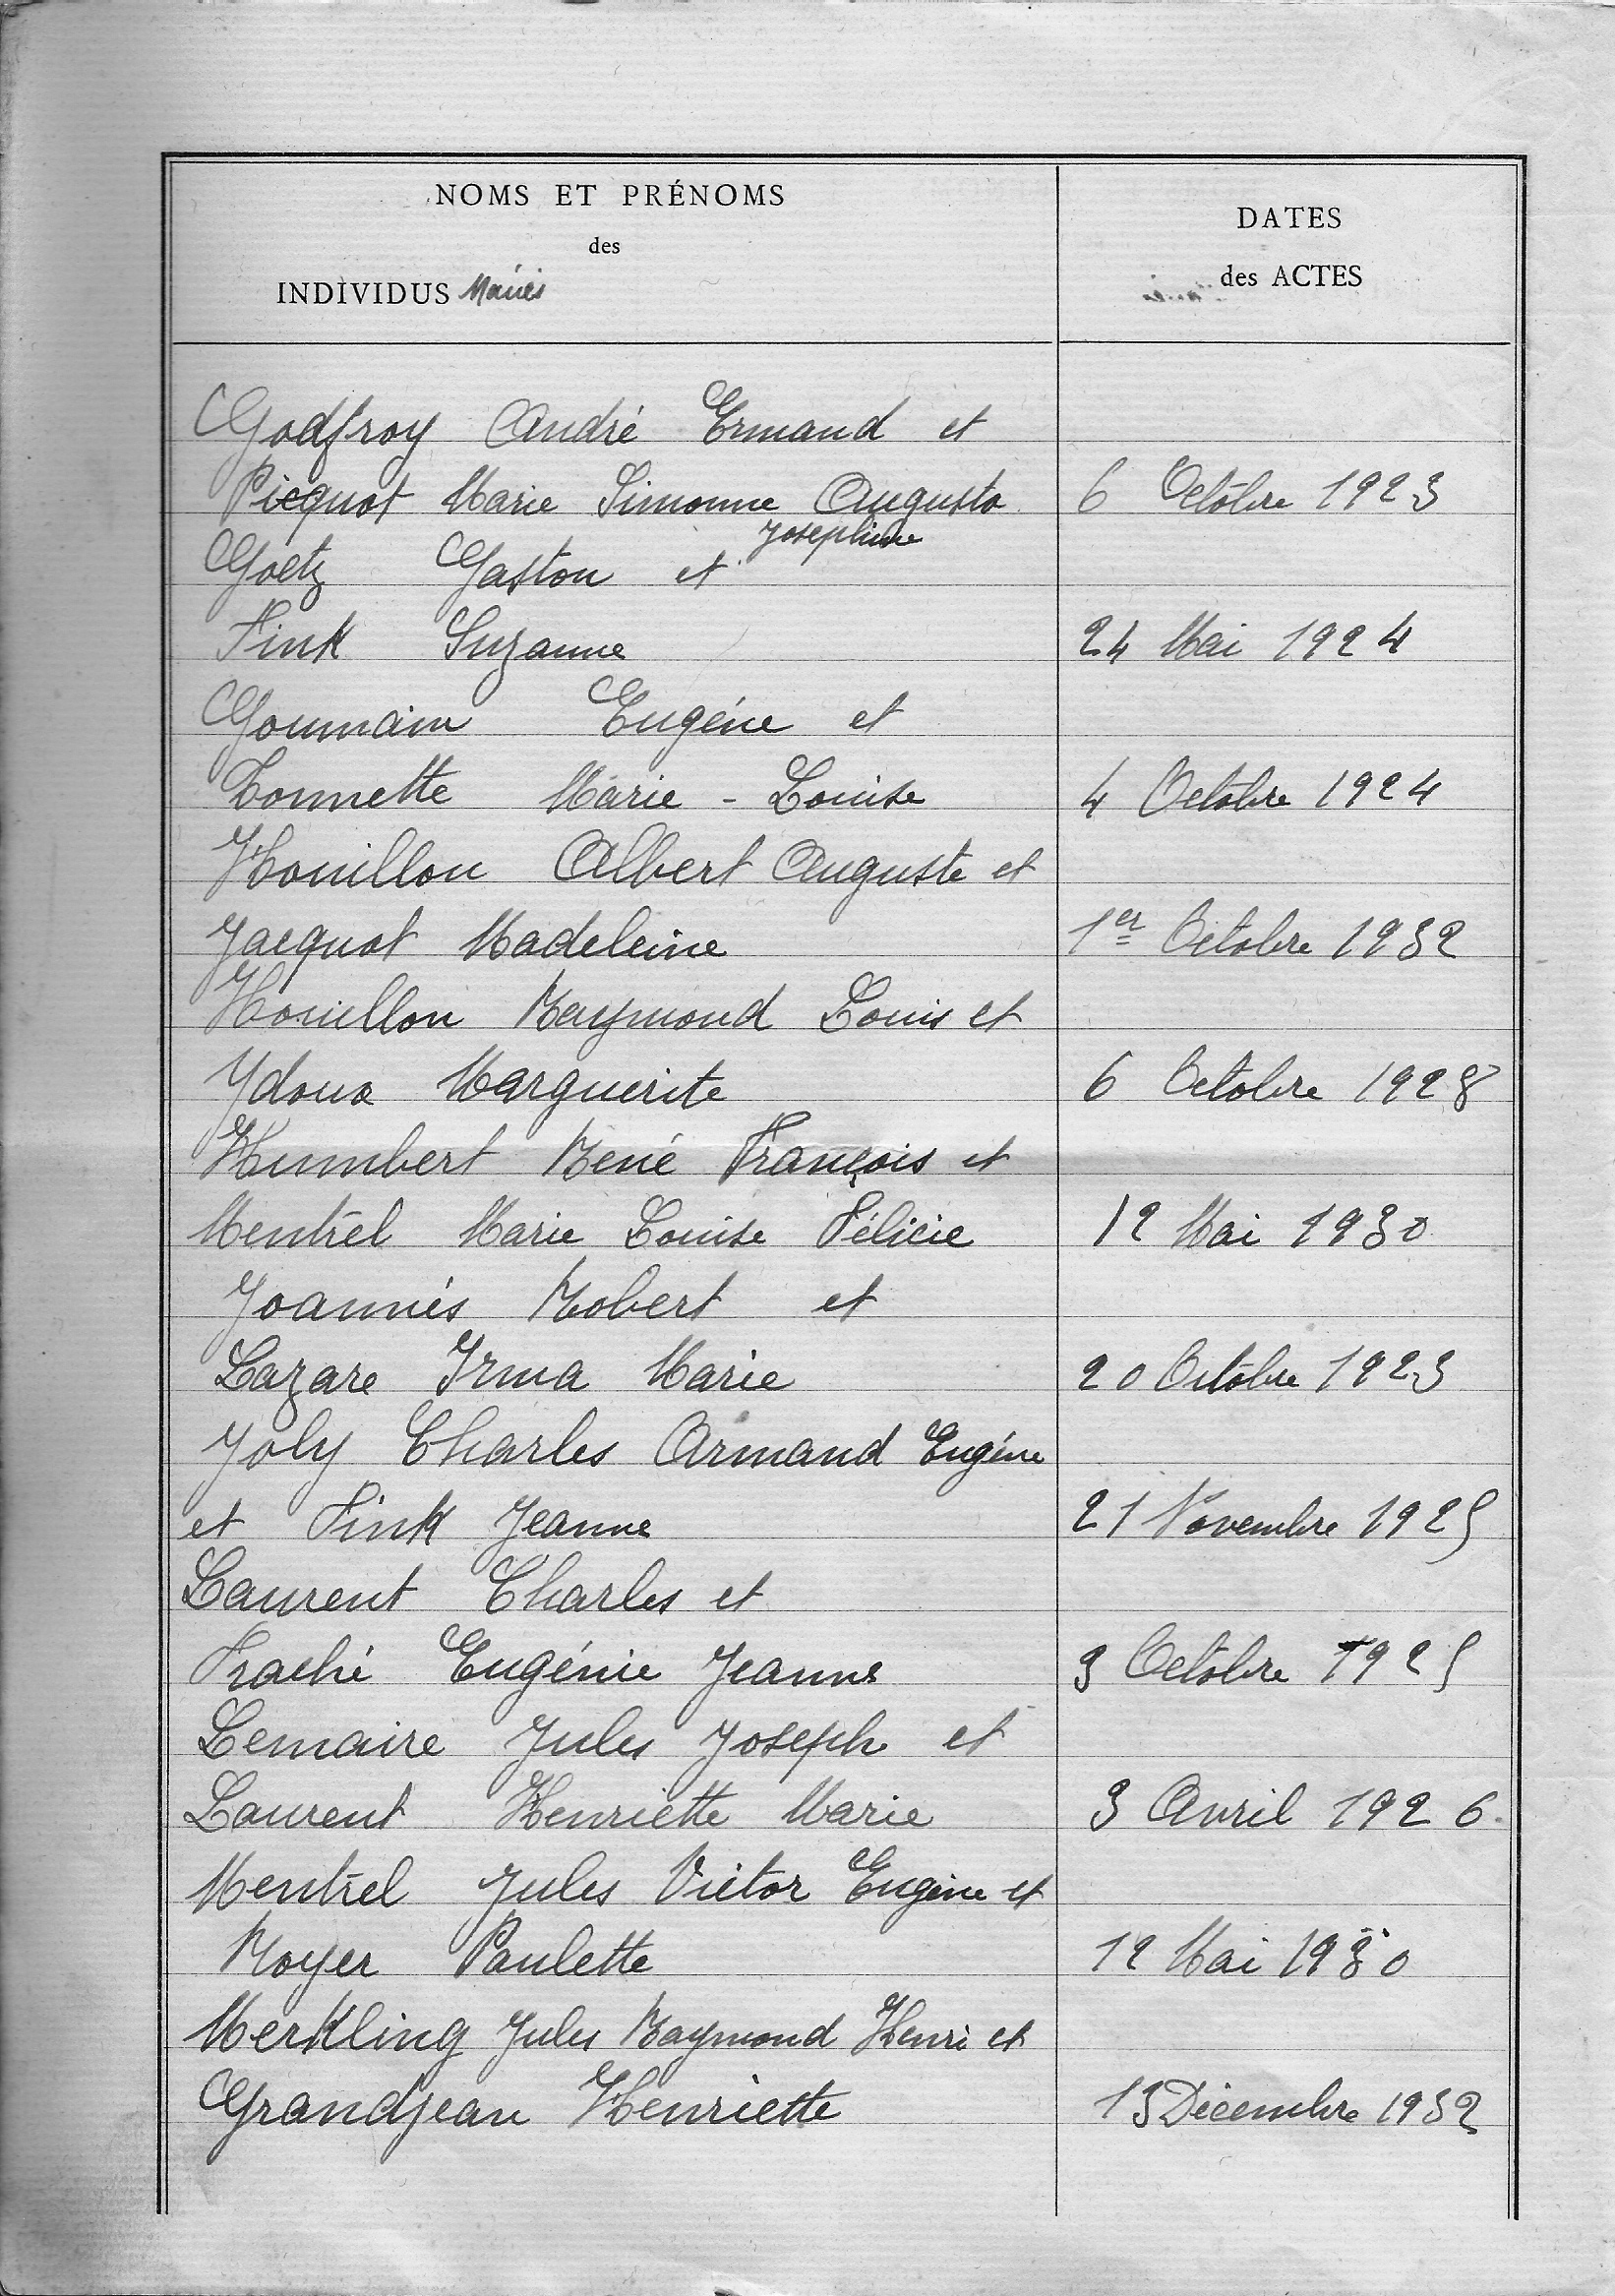 NOMS ET PRÉNOMS
des
INDIVIDUS Mariés
DATES
des ACTES
Godfroy André Ermand et
Picquot Marie Simonne Augusta 6 Octobre 1923
Joséphine
Goetz Gaston et
Fink Suzanne 24 Mai 1924
Goumain Eugène et
Lonnette Marie-Louise 4 Octobre 1924
Houillon Albert Auguste et
Jacquot Madeleine 1er Octobre 1932
Houillon Raymond Louis et
Ydoux Marguerite 6 Octobre 1928
Humbert René François et
Mentrel Marie Louise Félicie 12 Mai 1930
Joannès Robert et
Lazare Irma Marie 20 Octobre 1923
Joly Charles Armand Eugène
et Fink Jeanne 21 Novembre 1925
Laurent Charles et
Fraché Eugénie Jeanne 3 Octobre 1925
Lemaire Jules Joseph et
Laurent Henriette Marie 3 Avril 1926.
Mentrel Jules Victor Eugène et
Royer Paulette 12 Mai 1930
Merkling Jules Raymond Henri et
Grandjean Henriette 13 Décembre 1932